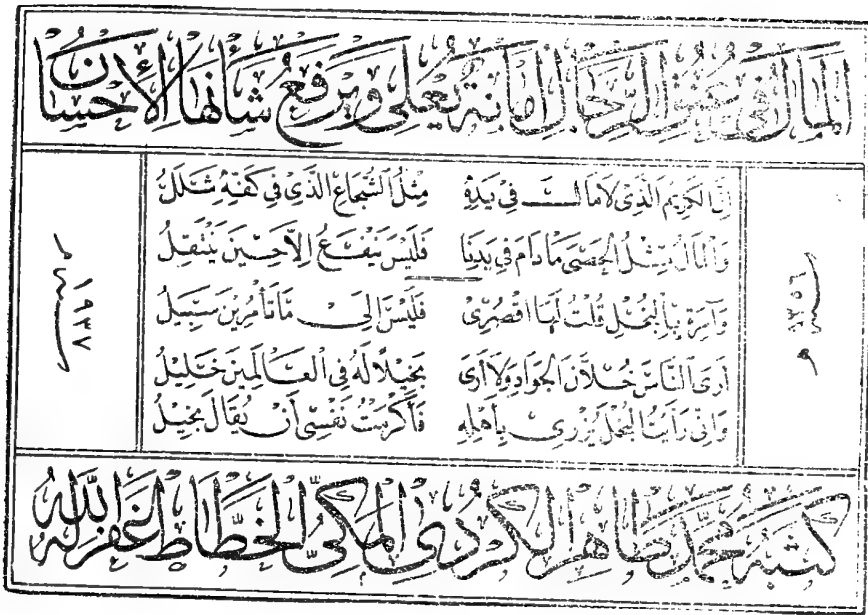 المال في عنق الرجال امانة يعلى ويرفع شأنها الإحسان
ان الكريم الذى لا مال فى يده مثل الشجاع الذى فى كفه شلل
والمال مثل الحصى ما دام فى يدنا فليس ينفع الا حين ينتقل
وآمرة بالبخل قلت لها اقصرى فليس الى ما تأمرين سبيل
ارى الناس خلان الجواد ولا ارى بخيلا له فى العالمين خليل
وانى رأيت البخل يزرى باهله فأكرمت نفسى أن يقال بخيل
سنة ١٣٥٦ هـ
سنة ١٩٣٧ م
كتبه محمد طاهر الكردي المكي الخطاط غفر الله له